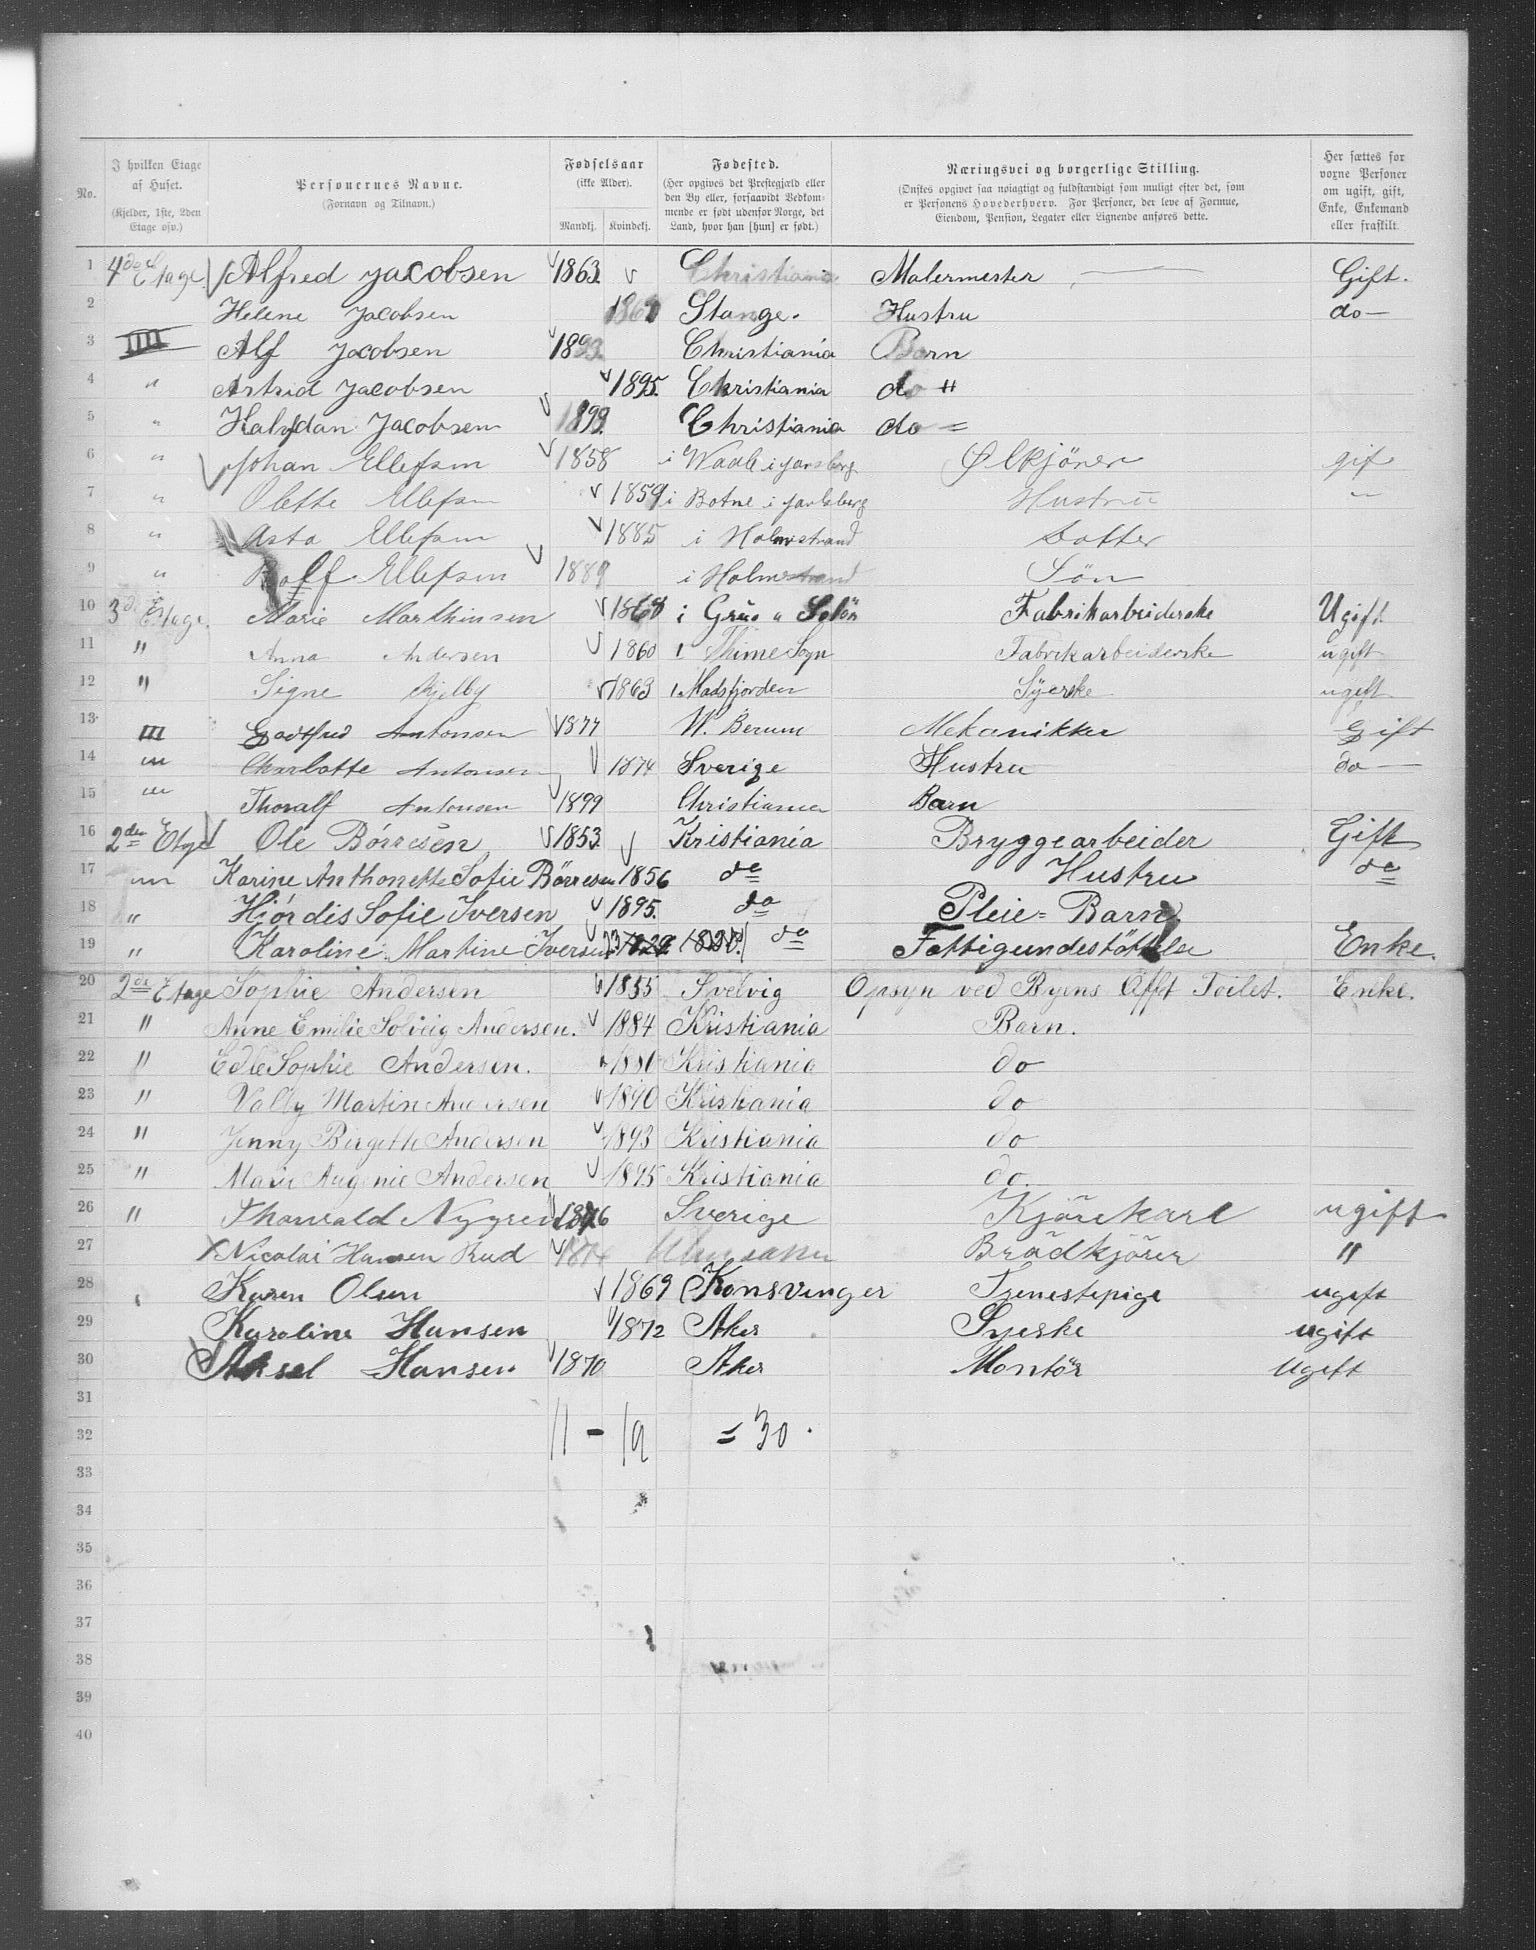 No. I hvilken Etage af Huset. (Kjelder, 1ste, 2den Etage osv.) Personernes Navne. (Fornavn og Tilnavn.) Fødselsaar (ikke Alder). Mandkj. Kvindekj. Fødested. (Her opgives det Præstegjæld eller den By eller, forsaavidt Vedkommende er født udenfor Norge, det Land, hvor han [hun] er født.) Næringsvei og borgerlige Stilling. (Ønskes opgivet saa nøiagtigt og fuldstændigt som muligt efter det, som er Personens Hovederhverv. For Personer, der leve af Formue, Eiendom, Pension, Legater eller Lignende anføres dette. Her sættes for voxne Personer om ugift, gift, Enke, Enkemand eller fraskilt.
1 4de Etage Alfred Jacobsen 1863 Christiania Malermester Gift.
2 Helene Jacobsen Stange. Hustru do—
3 IIII Alf Jacobsen 1893. Christiania Barn
4 " Astrid Jacobsen 1895. Christiania do "
5 " Halvdan Jacobsen 1899. Christiania do =
6 " Johan Ellefsen 1858 i Ølkjörer gift
7 " Olette Ellefsen 1859 i Botne i Jarlsberg Hustru "
8 " Asta Ellefsen 1885 i Holmestrand Datter
9 " Rolf Ellefsen 1889 i Holmestrand Sön
10 3de Etage. Marie Marthinsen 1868 i Grue Solör Fabrikarbeiderske Ugift
11 " Anna Andersen 1860 i Thime Sogn Fabrikarbeiderske ugift
12 " Signe 1863 i Syerske ugift
13 III Godtfred Antonsen 1877 V. Berum Mekanikker Gift
14 " Charlotte Antonsen 1874 Sverige Hustru do —
15 " Thoralf Antonsen 1899 Christiania Barn
16 2den Etage Ole Börresen 1853. Kristiania Bryggearbeider Gift
17 " Karine Anthonette Sofie Börresen 1856 do Hustru do
18 " Hjördis Sofie Iversen 1895. do Pleie=Barn
19 " Karoline Martine Iversen do Fattigunderstöttelse Enke.
20 2de Etage Sophie Andersen 1855 Svelvig Opsyn ved Byens Offt Toilet. Enke.
21 " Anne Emilie Solveig Andersen. 1884 Kristiania Barn.
22 " Edle Sophie Andersen. Kristiania do
23 " Vally Martin Andersen 1890 Kristiania do
24 " Jenny Birgethe Andersen 1893 Kristiania do
25 " Marie Augenie Andersen 1895 Kristiania do.
26 " Thorvald Nygren 1876 Sverige Kjörekarl ugift
27 Nicolai Hansen Rud 1874 Brödkjörer "
28 Karen Olsen 1869 Konsvinger Tjenestepige ugift
29 Karoline Hansen 1872 Aker Syerske ugift
30 Aksel Hansen 1870 Aker Montör Ugift
31
32 11 - 19 = 30.
33
34
35
36
37
38
39
40